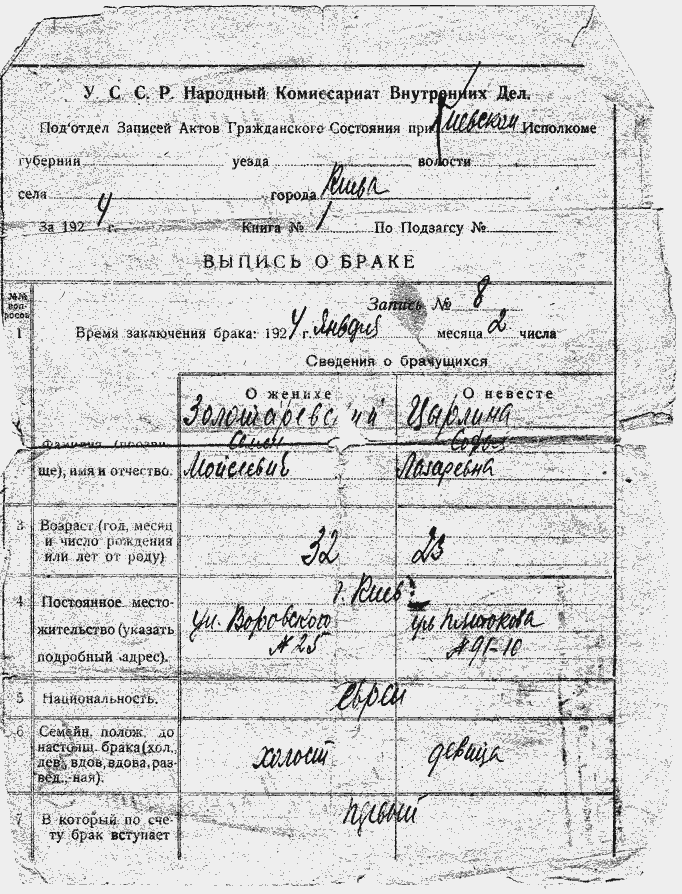 У. С. С. Р. Народный Комиссариат Внутренних Дел.
Под'отдел Записей Актов Гражданского Состояния при Киевском Исполкоме
губернии уезда волости
села города Киева
За 1924 г. Книга № 1 По Подзагсу №
ВЫПИСЬ О БРАКЕ
№№ воп-росов
Запись № 8
1 Время заключения брака: 1924 г. января месяца 2 числа
Сведения о брачущихся
О женихе О невесте
Золотаревский Цырлина
Фамилия (прозви- Семен Софья
ще), имя и отчество. Моисеевич Лазаревна
3 Возраст (год, месяц
и число рождения
или лет от роду) 32 23
г. Киев
4 Постоянное место-
жительство (указать ул. Воровского ул.
подробный адрес). № 25 № 91-10
5 Национальность. евреи
6 Семейн. полож. до
настоящ. брака (хол., холост девица
дев., вдов, вдова, раз-
вед., -ная).
7 В который по сче- первый
ту брак вступает